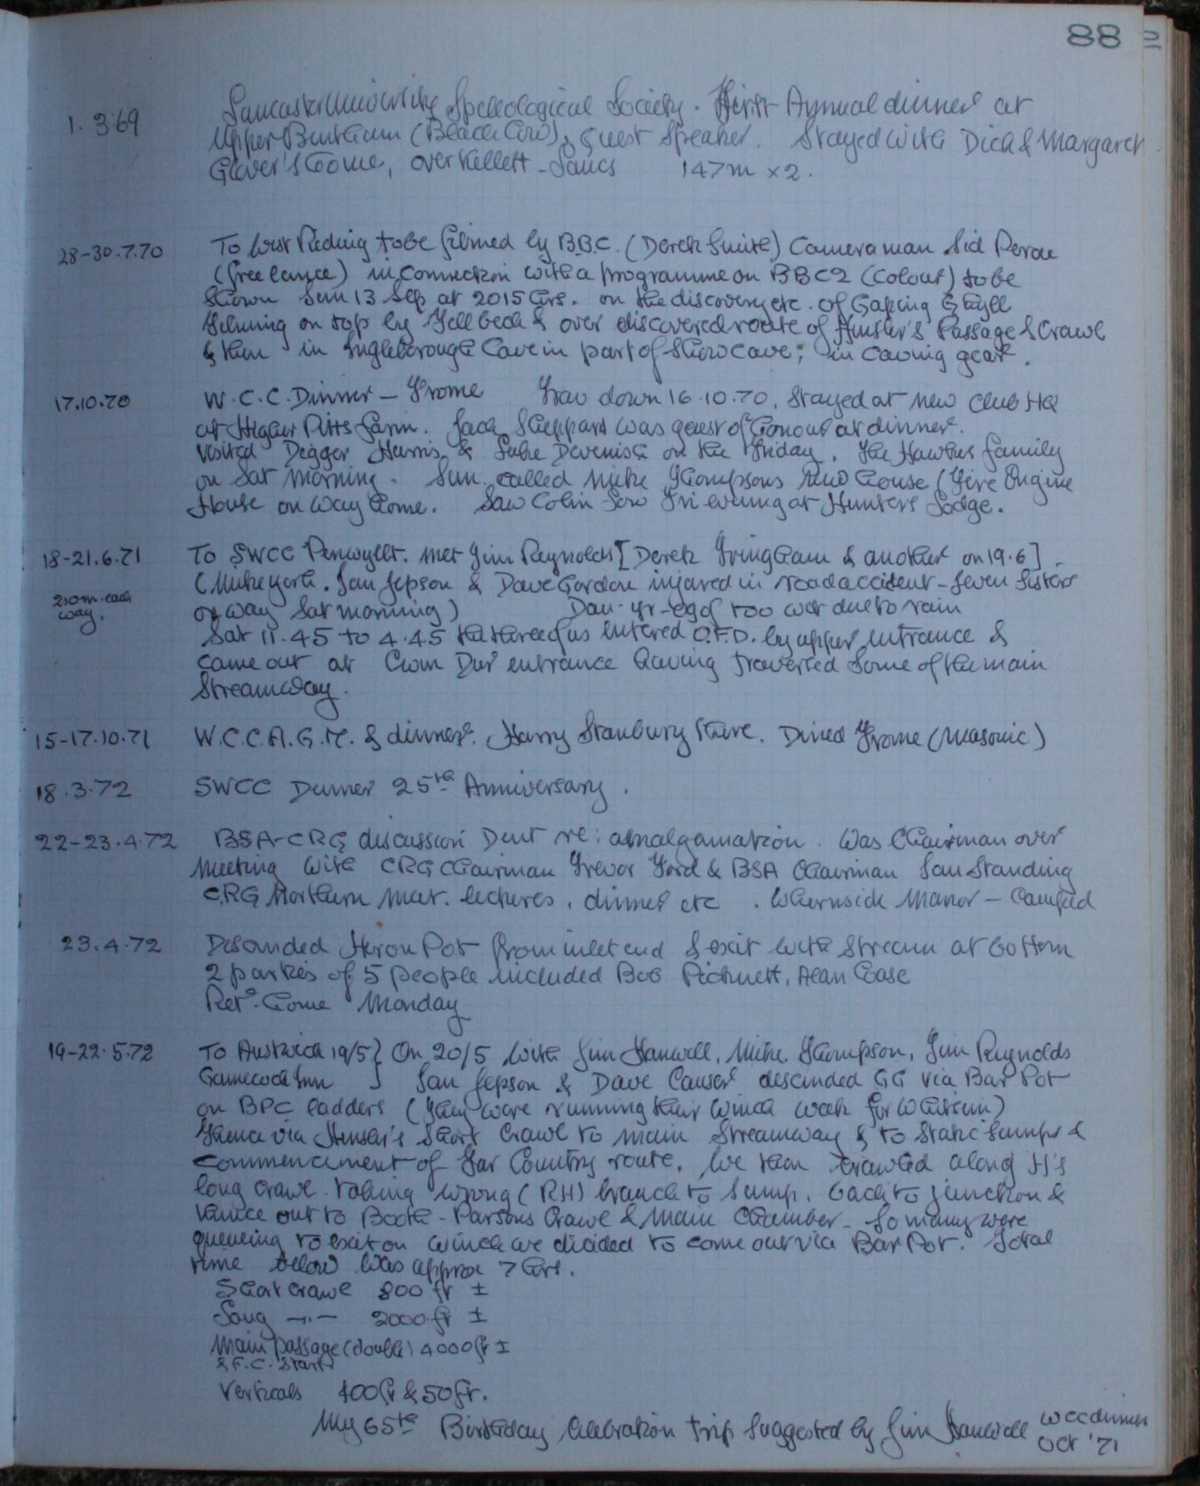 88
1.3.69 Lancaster University Speleological Society. First Annual dinner at
Upper Bentham (Black Cow), guest speaker. Stayed with Dick & Margaret
Glover's home, over Kellett - Lancs 147m x 2.
28-30.7.70 To be filmed by B.B.C. (Derek Smith) Cameraman Sid Perou
(freelance) in connection with a programme on BBC2 (Colour) to be
shown Sun 13 Sep at 2015 hrs. on the discovery etc. of Gaping Ghyll
Filming on top by Fell beck & over discovered route of Hensler's Passage & Crawl
& then in Ingleborough Cave in part of Show cave; in caving gear.
17.10.70 W.C.C. Dinner - Frome Trav down 16.10.70. Stayed at new Club HQ
at Higher Pitts farm. Jack Sheppard was guest of honour at dinner.
Visited Digger Harris & Luke Devenish on the Friday. The Hawkes family
on Sat morning. Sun. called Mike Thompsons new house (Fire Engine
House on way home. Saw Colin Low Fri evening at Hunters Lodge.
18-21.6.71 To SWCC Penwyllt. met Jim Reynolds [Derek & another on 19.6]
210m. each way. (Mike York. Ian Jepson & Dave Gordon injured in road accident - Seven Sisters
on way Sat morning) Dan-yr-ogof too wet due to rain
Sat 11.45 to 4.45 the three of us entered O.F.D. by upper entrance &
came out at Cwm Dwr entrance having traversed some of the main
Streamway.
15-17.10.71 W.C.C. A.G.M. & dinner. Harry Stanbury there. Dined Frome (Masonic)
18.3.72 SWCC Dinner 25th Anniversary.
22-23.4.72 BSA-CRG discussion Dent re: amalgamation. Was Chairman over
Meeting with CRG Chairman Trevor Ford & BSA Chairman Ian Standing
CRG Northern meet. lectures, dinner etc. Whernside Manor - Camped
23.4.72 Descended Heron Pot from inlet end & exit with stream at bottom
2 parties of 5 people included Bob Alan Case
Retd. home Monday
19-22.5.72 To Austwick 19/5} On 20/5 with Jim Hanwell, Mike Thompson, Jim Reynolds
Gamecock Inn } Ian Jepson & Dave Causer descended GG via Bar Pot
on BPC ladders (They were running their winch week for Whitsun)
Thence via Hensler's Short Crawl to main Streamway & to Static Sumps &
commencement of Far Country route. We then crawled along H's
long crawl taking wrong (RH) branch to sump. back to junction &
thence out to Booth-Parsons Crawl & Main Chamber. So many were
queueing to exit on winch we decided to come out via Bar Pot. Total
time below was approx 7 hrs.
Short crawl 800 ft ±
Long -"- 2000 ft ±
Main passage (double) 4000 ft ±
& F.C. Start
Verticals 100 ft & 50 ft.
My 65th Birthday Celebration trip suggested by Jim Hanwell WCC dinner
Oct '71